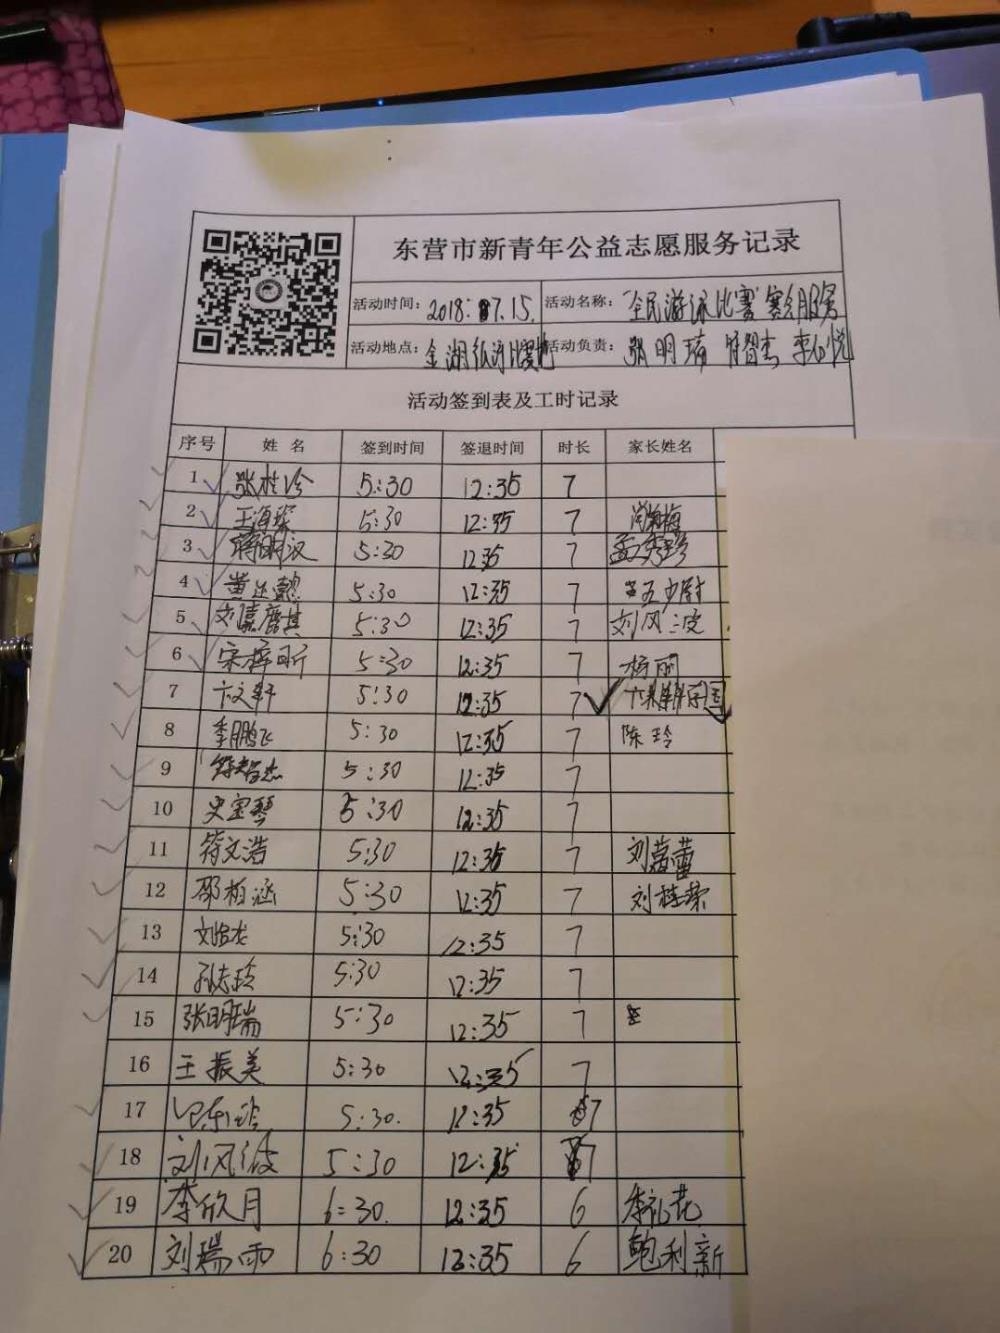 东营市新青年公益志愿服务记录
活动时间: 2018. 7.15. 活动名称: "全民游泳比赛"赛会服务
活动地点: 金湖 活动负责: 张明瑞 符智杰 李
活动签到表及工时记录
序号 姓名 签到时间 签退时间 时长 家长姓名
1 张桂珍 5:30 12:35 7
2 王海琛 5:30 12:35 7
3 蒋明汉 5:30 12:35 7 孟秀珍
4 黄 5:30 12:35 7
5 刘嘉麒 5:30 12:35 7 刘风波
6 宋梓昕 5:30 12:35 7 杨丽
7 卞文轩 5:30 12:35 7
8 季鹏飞 5:30 12:35 7 陈玲
9 符智杰 5:30 12:35 7
10 史宝琴 5:30 12:35 7
11 符文浩 5:30 12:35 7 刘蕾蕾
12 邵柏涵 5:30 12:35 7 刘桂荣
13 刘 5:30 12:35 7
14 孙志玲 5:30 12:35 7
15 张明瑞 5:30 12:35 7
16 王振美 5:30 12:35 7
17 陈玲 5:30. 12:35 7
18 刘风波 5:30 12:35 7
19 李欣月 6:30. 12:35 6 李礼花
20 刘瑞雨 6:30 12:35 6 鲍利新